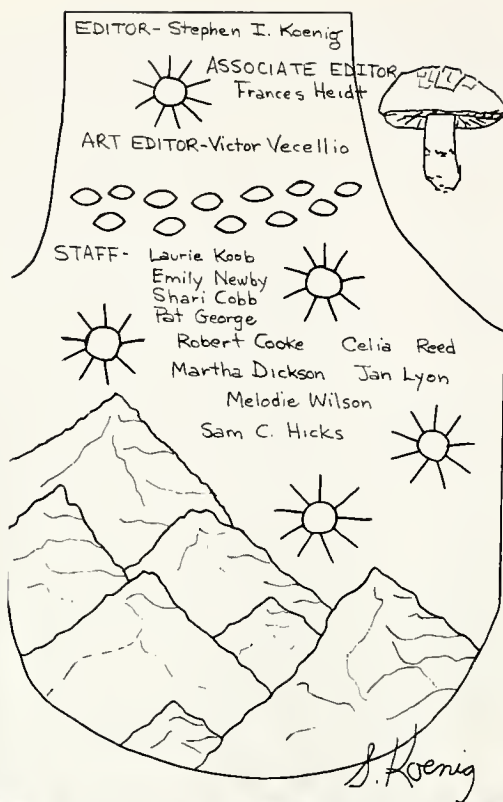 EDITOR- Stephen I. Koenig
ASSOCIATE EDITOR
Frances Heidt
ART EDITOR-Victor Vecellio
STAFF- Laurie Koob
Emily Newby
Shari Cobb
Pat George
Robert Cooke Celia Reed
Martha Dickson Jan Lyon
Melodie Wilson
Sam C. Hicks
S. Koenig